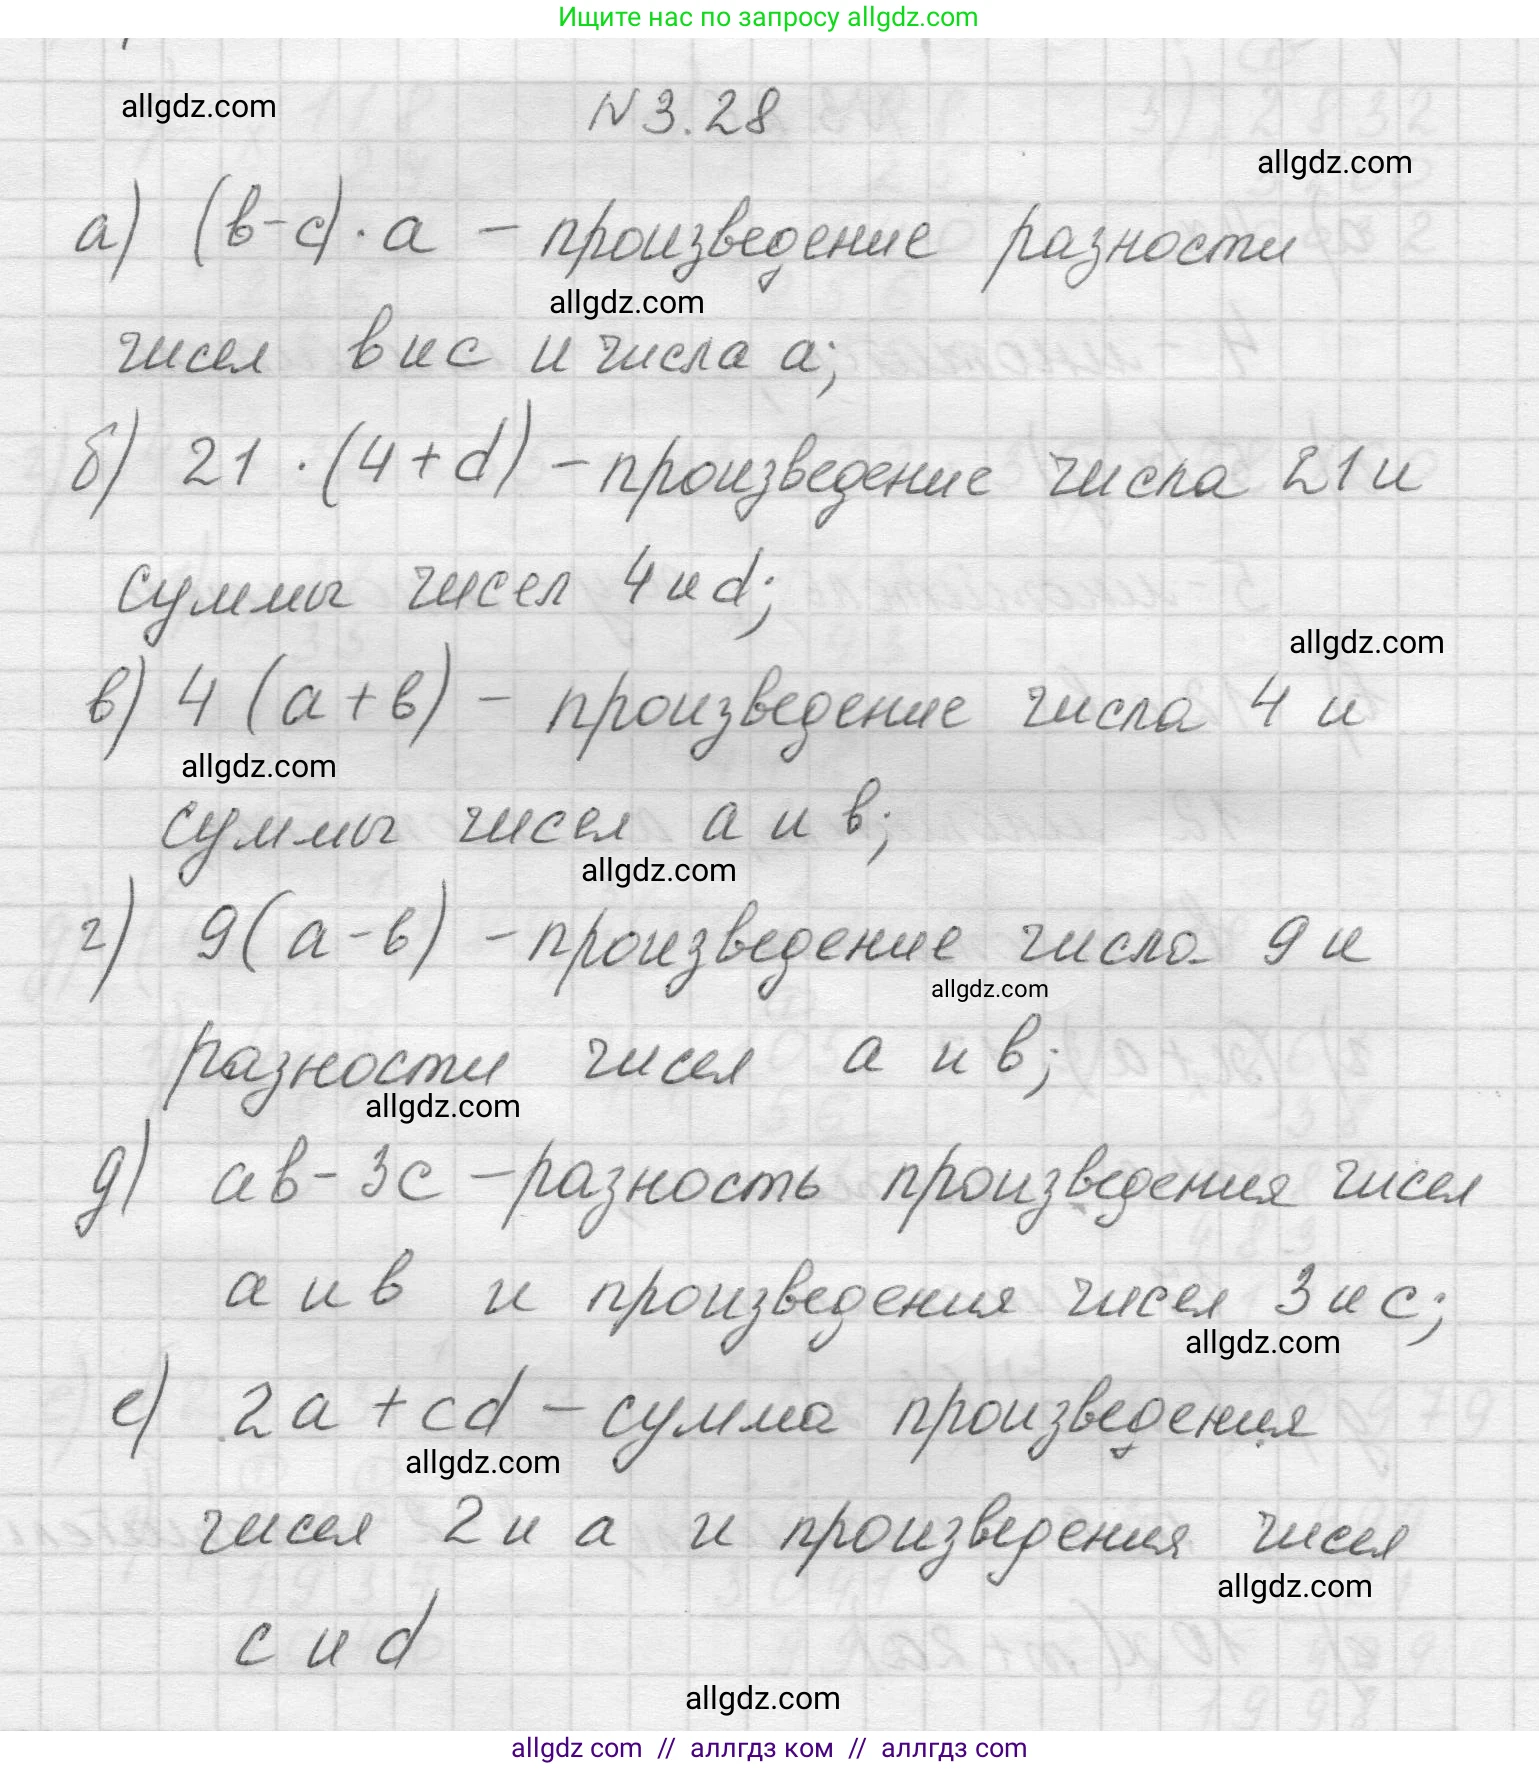 Ищите нас по запросу allgdz.com
allgdz.com
N 3.28
allgdz.com
а) (в-с)·а – произведение разности
allgdz.com
чисел в и с и числа а;
б) 21 ·(4+d) – произведение числа 21 и
суммы чисел 4 и d;
allgdz.com
в) 4 (а+в) – произведение числа 4 и
allgdz.com
суммы чисел а и в;
allgdz.com
г) 9(а-в) – произведение числа 9 и
allgdz.com
разности чисел а и в;
allgdz.com
д) ав-3с – разность произведения чисел
а и в и произведения чисел 3 и с;
allgdz.com
е) 2а+cd – сумма произведения
allgdz.com
чисел 2 и а и произведения чисел
allgdz.com
с и d
allgdz.com
allgdz com // аллгдз ком // аллгдз com